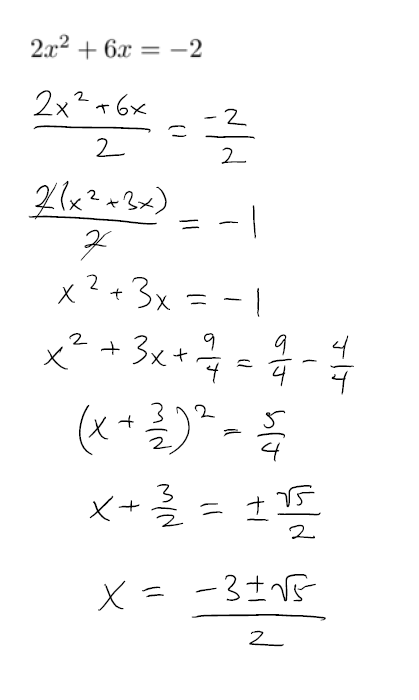 2x² + 6x = −2
(2x² + 6x)/2 = -2/2
2(x² + 3x)/2 = -1
x² + 3x = -1
x² + 3x + 9/4 = 9/4 - 4/4
(x + 3/2)² = 5/4
x + 3/2 = ± √5/2
x = (-3 ± √5)/2